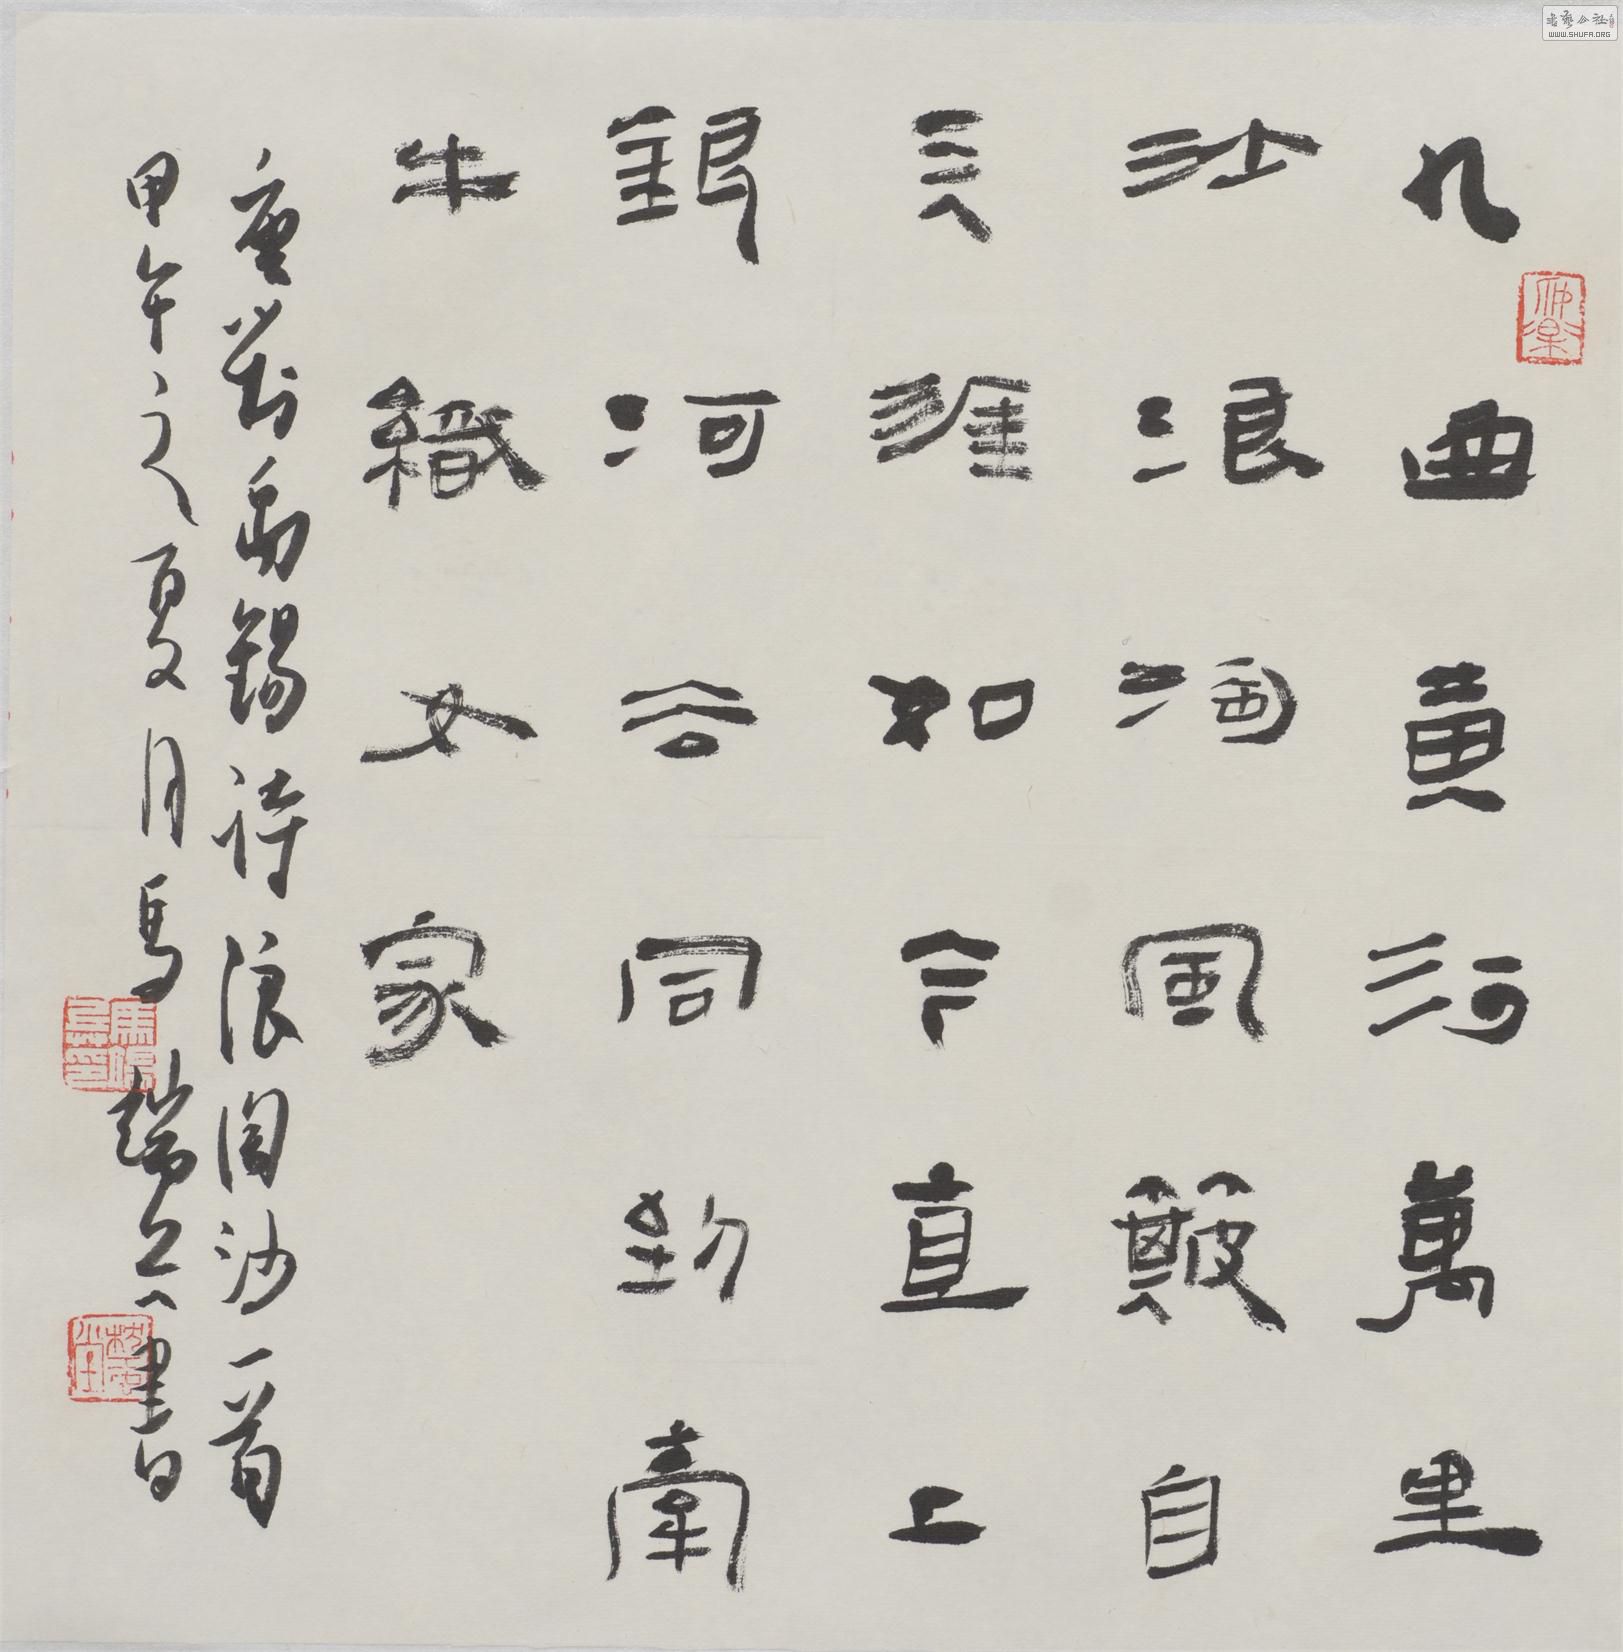 九曲黃河萬里
沙浪淘風簸自
天涯如今直上
銀河去同到牽
牛織女家
唐劉禹錫詩浪淘沙一首
甲午之夏月馬書
书艺公社
WWW.SHUFA.ORG